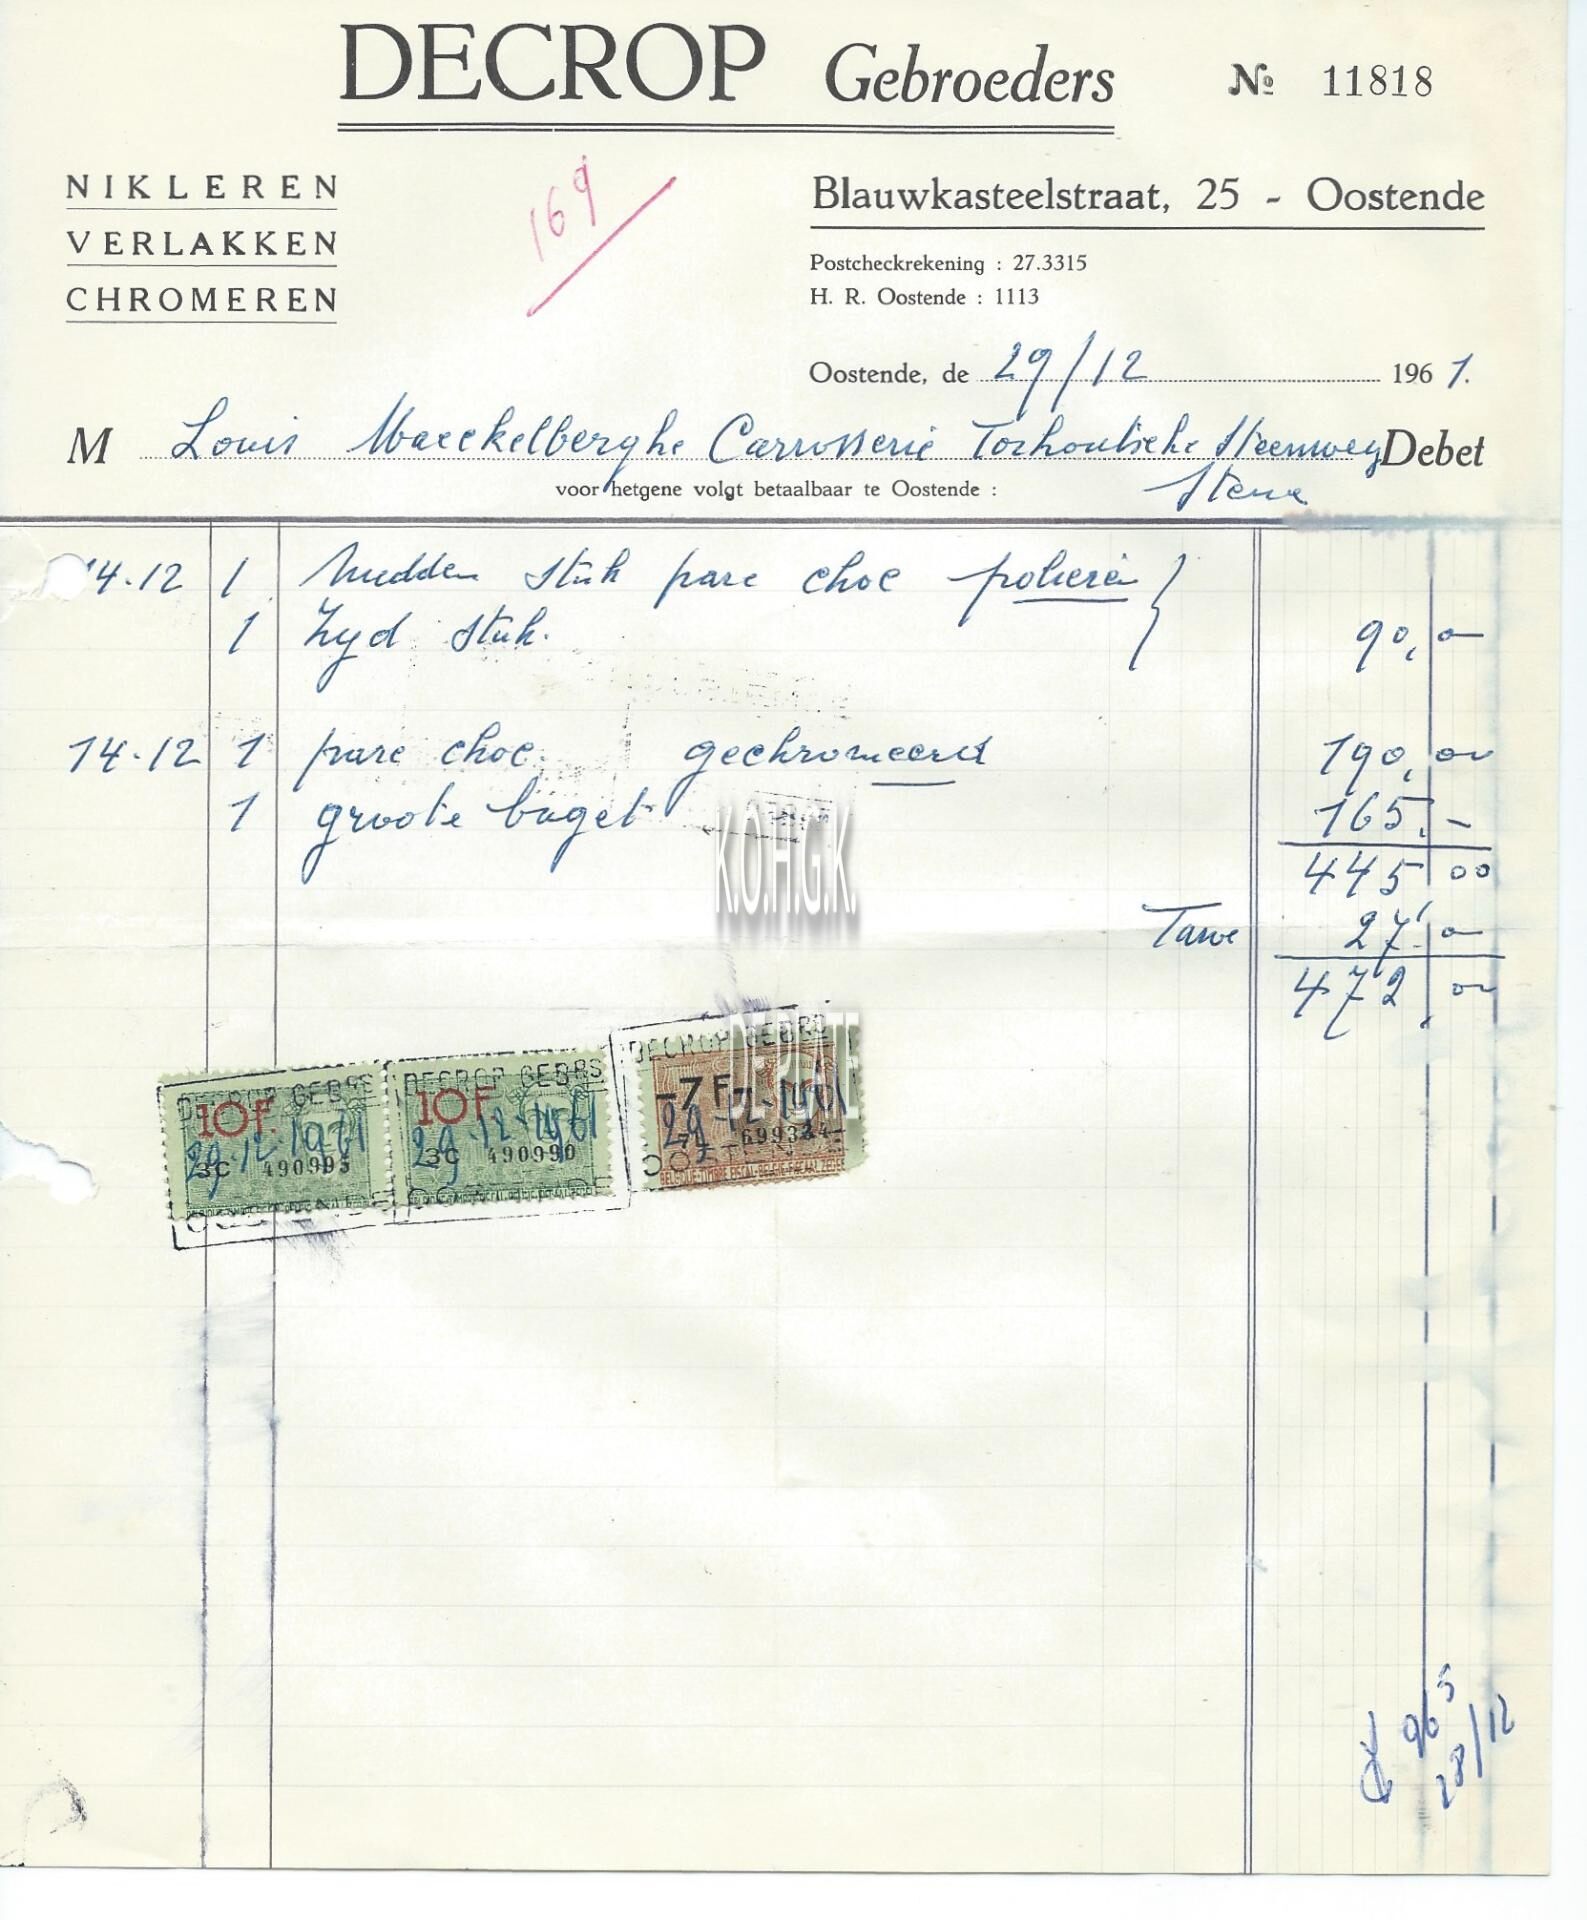 DECROP Gebroeders № 11818
NIKLEREN
VERLAKKEN
CHROMEREN
169
Blauwkasteelstraat, 25 - Oostende
Postcheckrekening : 27.3315
H. R. Oostende : 1113
Oostende, de 29/12 1961.
M Louis Maeckelberghe Carrosserie Torhoutsche Steenweg Debet
voor hetgene volgt betaalbaar te Oostende : Stene
14.12 1 midden stuk pare choc polieren
1 zyd stuk. 90,
14.12 1 pare choc. gechromeerd 190,00
1 groote baget 165.-
445 00
Taxe 27.
472 00
K.O.H.G.K.
DE PLATE
DECROP GEBRS DECROP GEBRS DECROP GEBRS
10F. 10F -7F-
29.12.1961 29.12.1961 29.12.1961
3C 490995 3C 490990 7L 699334
BELGIQUE-TIMBRE FISCAL-BELGIE-FISCAAL ZEGEL
OOSTENDE OOSTENDE
96 5
28/12